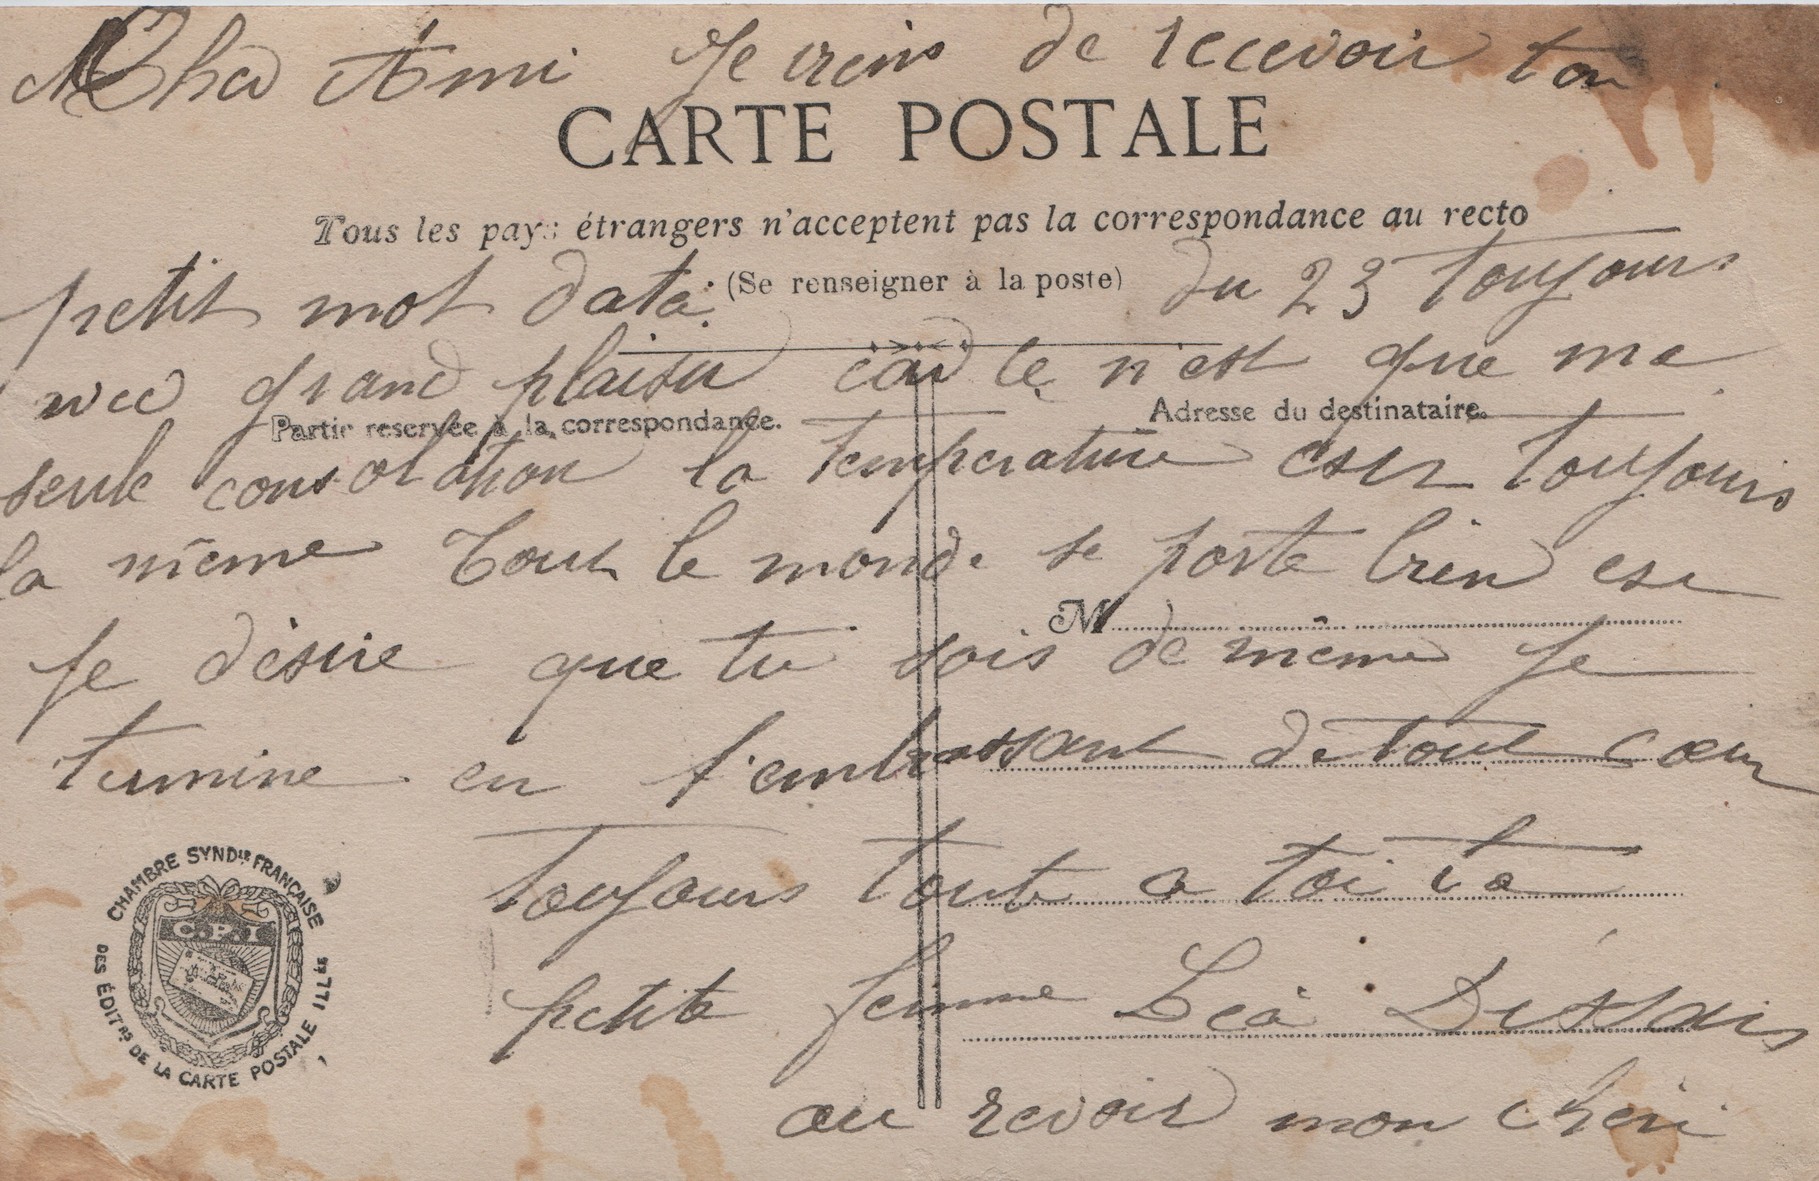 Cher Ami Je viens de recevoir ton
CARTE POSTALE
Tous les pays étrangers n'acceptent pas la correspondance au recto
(Se renseigner à la poste)
petit mot daté du 23 toujours
avec grand plaisir car ce n'est que ma
Partie reservée à la correspondance.
Adresse du destinataire.
seule consolation la temperature est toujours
la même Tout le monde se porte bien est
M
Je désire que tu sois de même Je
termine en t'embrassant de tout cœur
toujours toute a toi ta
petite femme Léa
au revoir mon cheri
CHAMBRE SYNDle FRANÇAISE
DES ÉDITRS DE LA CARTE POSTALE ILLÉE
C.P.I